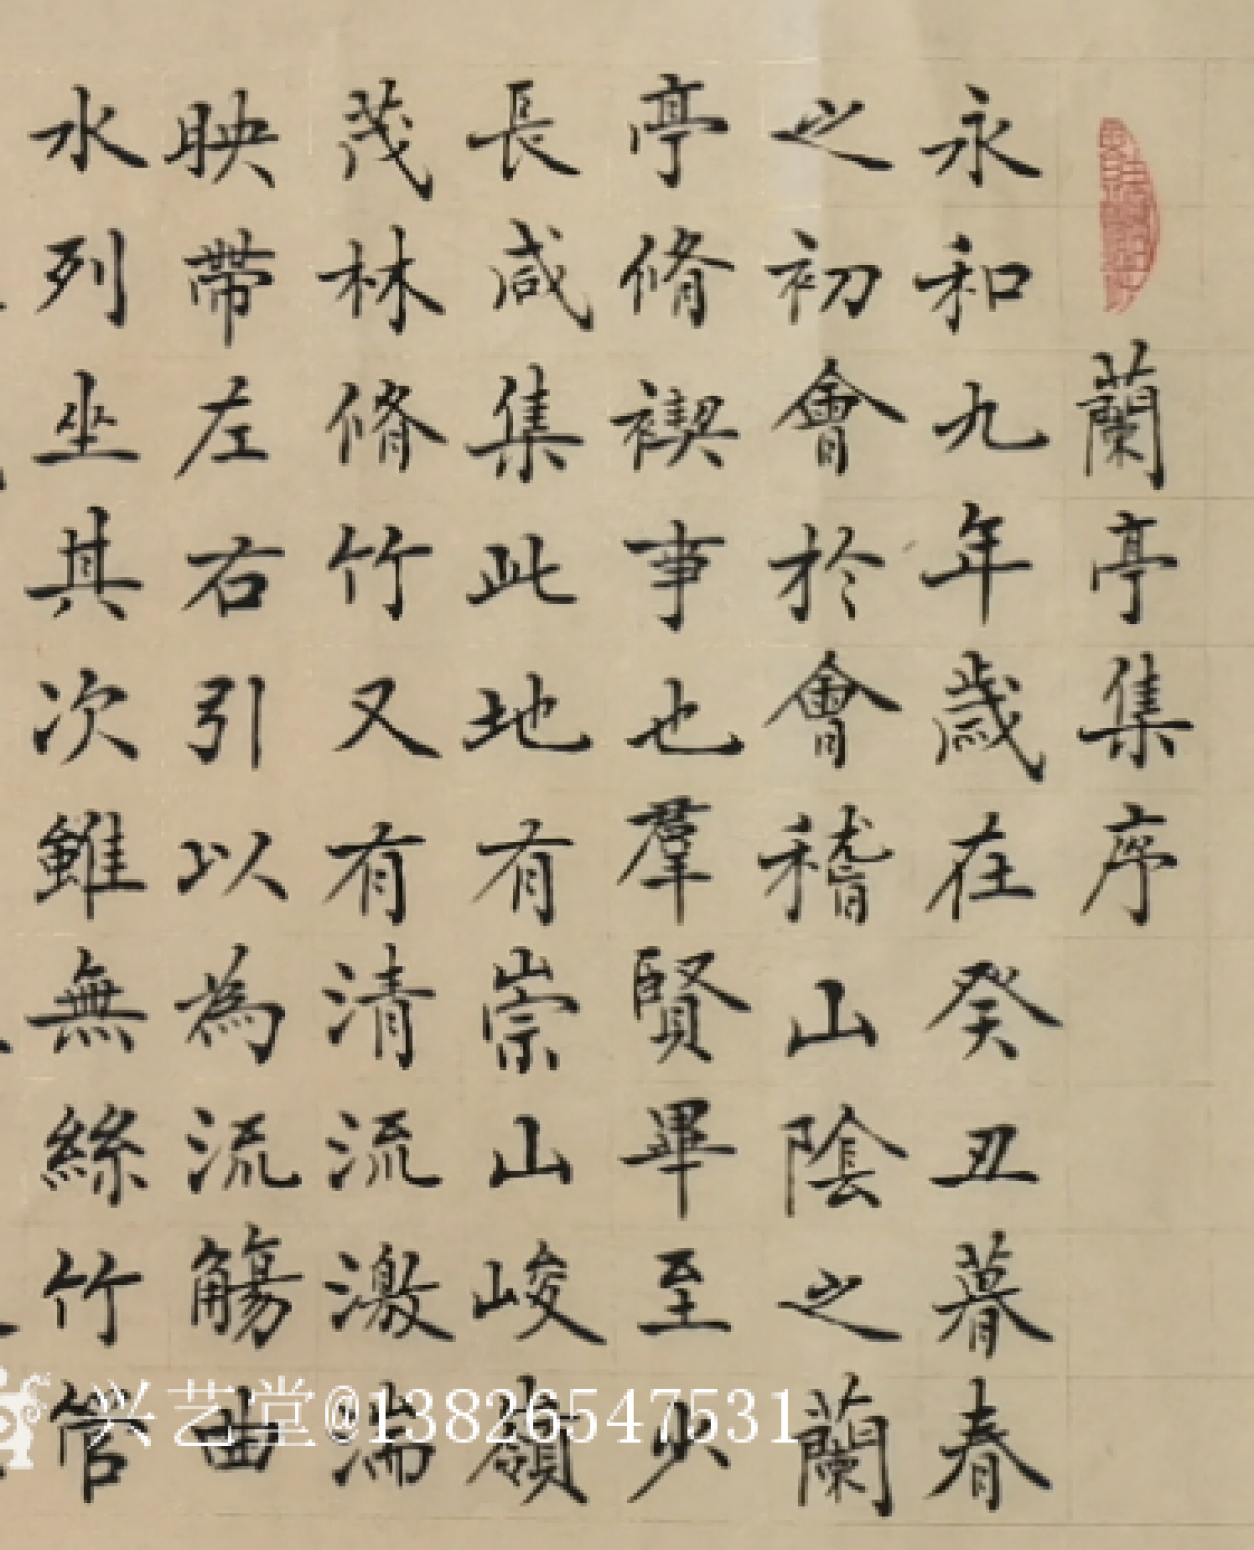 蘭亭集序
永和九年歲在癸丑暮春
之初會於會稽山陰之蘭
亭脩禊事也羣賢畢至少
長咸集此地有崇山峻嶺
茂林脩竹又有清流激湍
映帶左右引以為流觴曲
水列坐其次雖無絲竹管
兴艺堂@13826547531